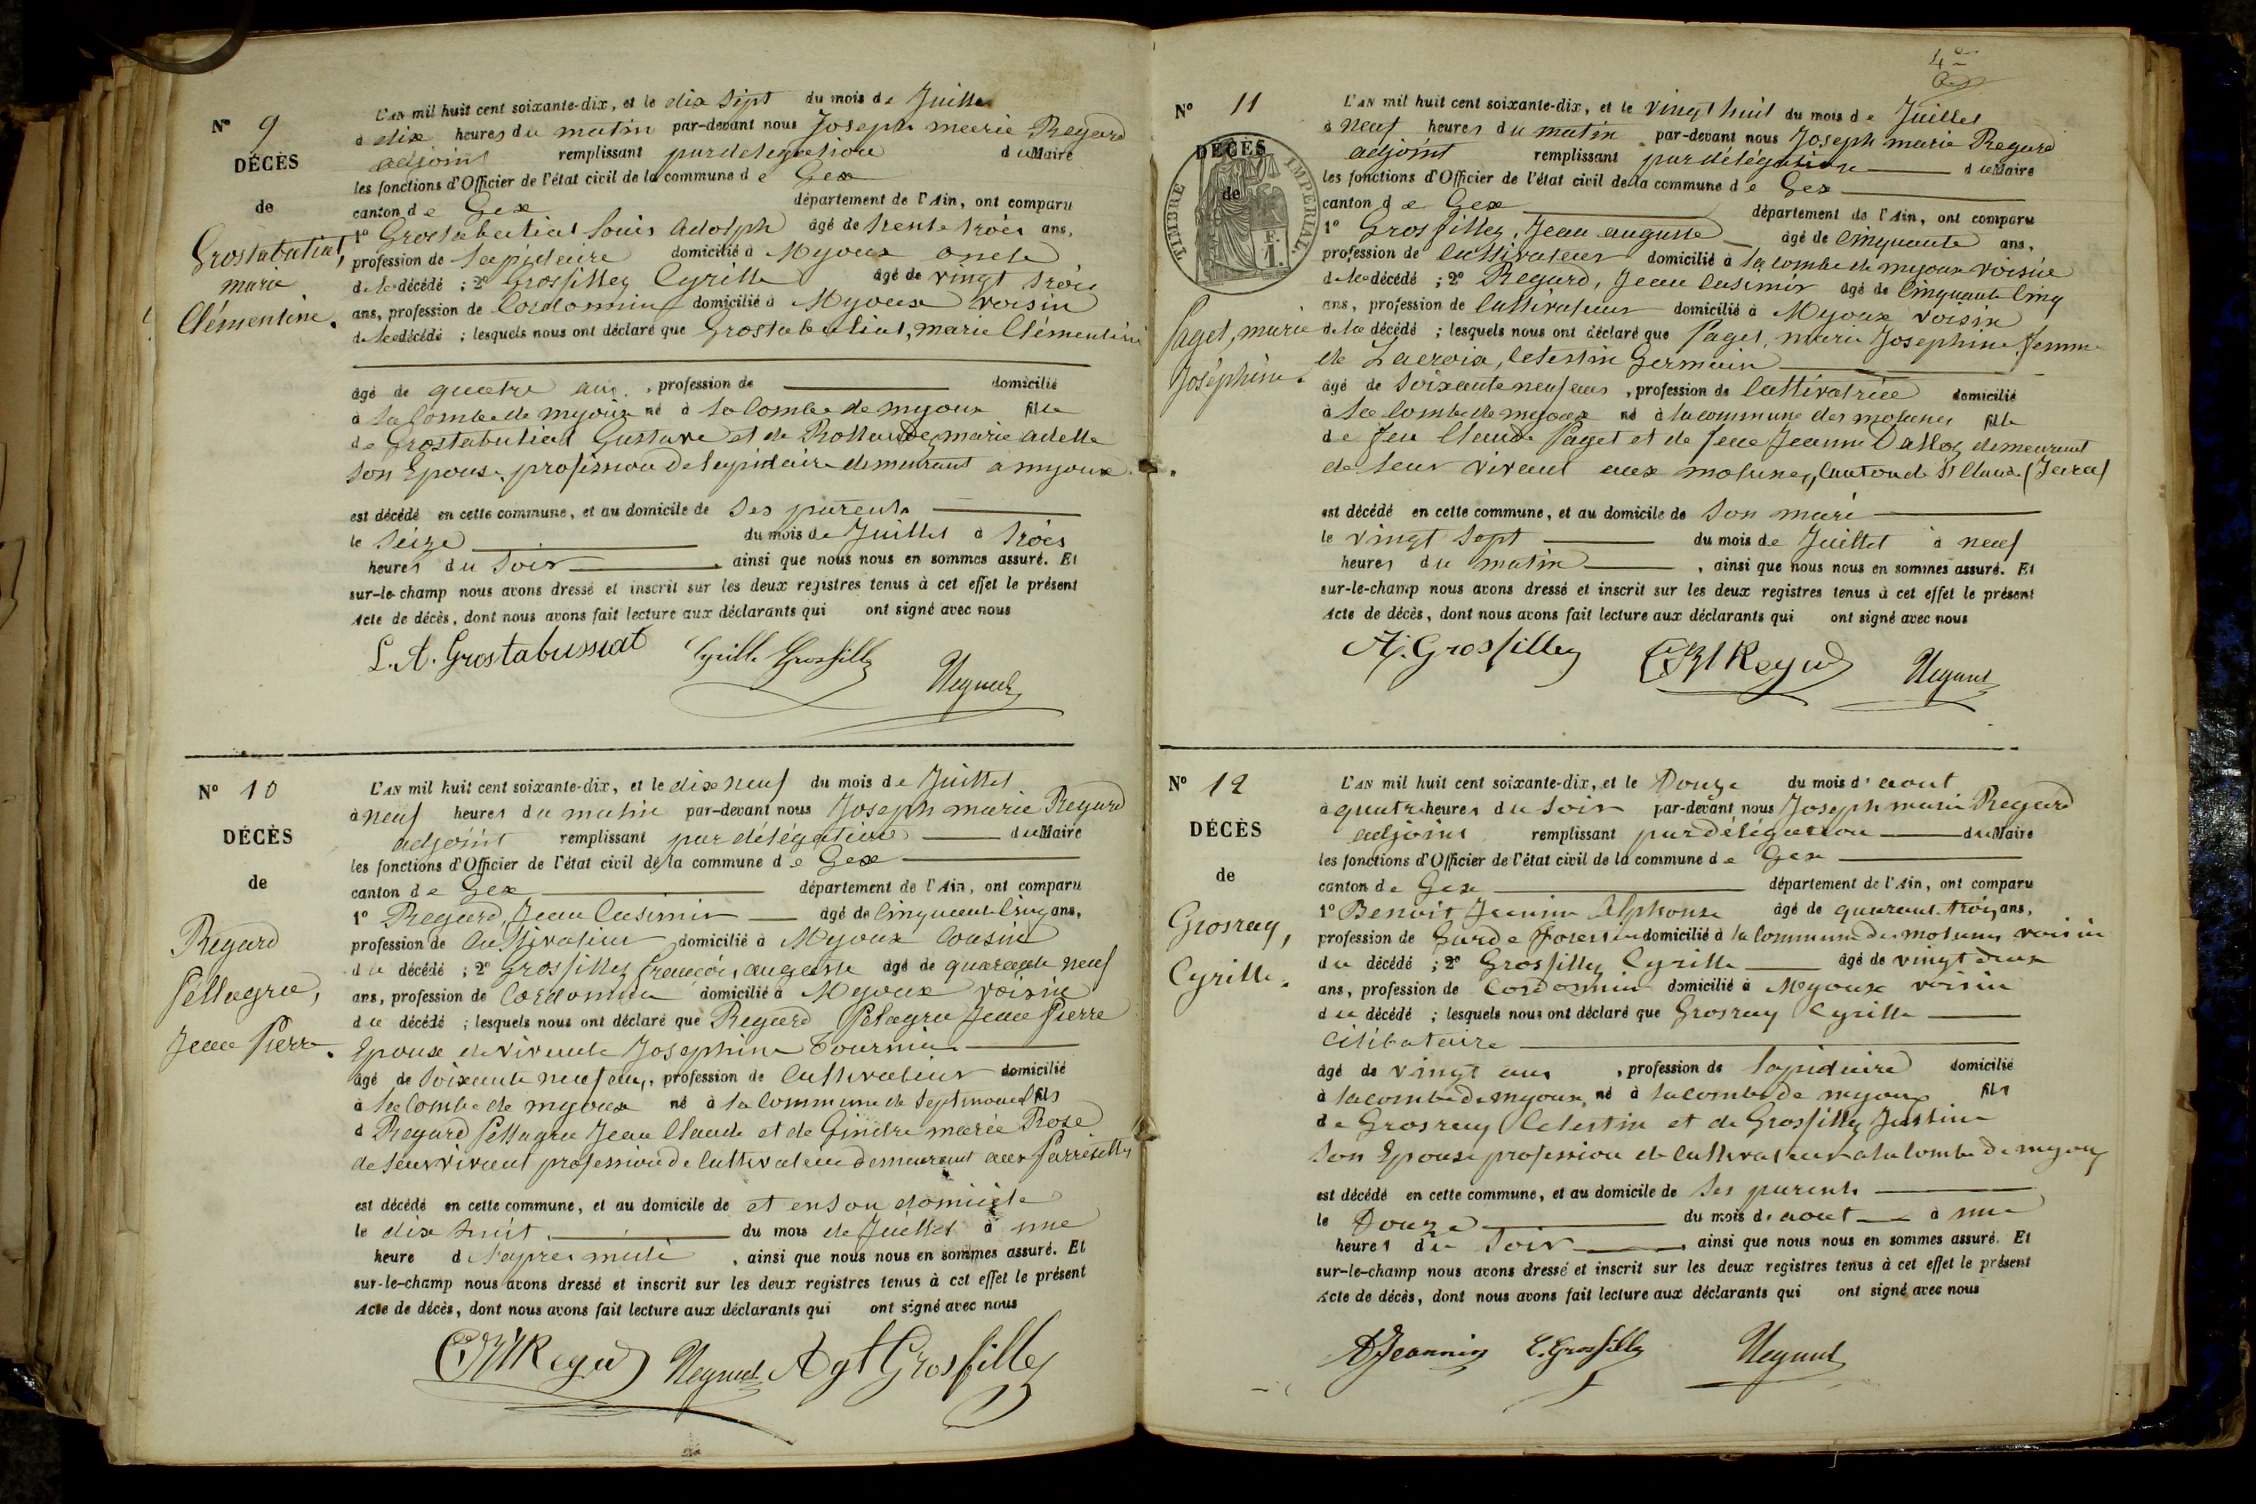 N° 9
DÉCÈS
de
Grostabutiat,
marie
Clémentine.
L'AN mil huit cent soixante-dix, et le dix sept du mois de Juillet
à dix heures du matin par-devant nous Joseph marie Regard
adjoint remplissant par délégation du Maire
les fonctions d'Officier de l'état civil de la commune de Gex
canton de Gex département de l'Ain, ont comparu
1° Grostabutiat Louis Adolph âgé de trente trois ans,
profession de Lapidaire domicilié à Myoux oncle
de la décédé ; 2° Grosfilley Cyrille âgé de vingt trois
ans, profession de Cordonnier domicilié à Myoux voisin
de la décédé ; lesquels nous ont déclaré que Grostabutiat, marie Clémentine
âgé de quatre ans, profession de domicilié
à la Combe de myoux né à la Combe de myoux fille
de Grostabutiat Gustave et de marie adelle
son Epouse, profession de Lapidaire demeurant à myoux.
est décédé en cette commune, et au domicile de ses parents
le seize du mois de Juillet à trois
heures du soir, ainsi que nous nous en sommes assuré. Et
sur-le-champ nous avons dressé et inscrit sur les deux registres tenus à cet effet le présent
Acte de décès, dont nous avons fait lecture aux déclarants qui ont signé avec nous
L. A. Grostabussiat Cyrille Grosfilley
Regard
N° 10
DÉCÈS
de
Regard
Pellagru,
Jean Pierre.
L'AN mil huit cent soixante-dix, et le dix neuf du mois de Juillet
à neuf heures du matin par-devant nous Joseph marie Regard
adjoint remplissant par délégation du Maire
les fonctions d'Officier de l'état civil de la commune de Gex
canton de Gex département de l'Ain, ont comparu
1° Regard, Jean Casimir âgé de Cinquante Cinq ans,
profession de Cultivateur domicilié à Myoux Cousin
du décédé ; 2° Grosfilley François auguste âgé de quarante neuf
ans, profession de Cordonnier domicilié à Myoux voisin
du décédé ; lesquels nous ont déclaré que Regard Pelagru Jean Pierre
Epoux de vivante Josephine Tournier
âgé de soixante neuf ans, profession de Cultivateur domicilié
à la Combe de myoux né à la Commune de Septmoncel fils
d Regard Pellagru Jean Claude et de Gindre marie Rose
de leur vivant profession de Cultivateur demeurant aux
est décédé en cette commune, et au domicile de et en son domicile
le dix huit du mois de Juillet à une
heure d l'après midi, ainsi que nous nous en sommes assuré. Et
sur-le-champ nous avons dressé et inscrit sur les deux registres tenus à cet effet le présent
Acte de décès, dont nous avons fait lecture aux déclarants qui ont signé avec nous
Regard Regard Agt Grosfilley
N° 11
TIMBRE IMPÉRIAL
DÉCÈS
de
Paget, marie
Joséphine.
L'AN mil huit cent soixante-dix, et le vingt huit du mois de Juillet
à neuf heures du matin par-devant nous Joseph marie Regard
adjoint remplissant par délégation du Maire
les fonctions d'Officier de l'état civil de la commune de Gex
canton de Gex département de l'Ain, ont comparu
1° Grosfilley, Jean auguste âgé de Cinquante ans,
profession de Cultivateur domicilié à la combe de myoux voisin
de la décédé ; 2° Regard, Jean Casimir âgé de Cinquante Cinq
ans, profession de Cultivateur domicilié à Myoux voisin
de la décédé ; lesquels nous ont déclaré que Paget, marie Josephine femme
de Lacroix, Celestin Germain
âgé de soixante neuf ans, profession de Cultivatrice domicilié
à la Combe de myoux né à la commune des molunes fille
de feu Claude Paget et de feue Jeanne Dalloz demeurant
de leur vivant aux molunes, Canton de St Claude (Jura)
est décédé en cette commune, et au domicile de son mari
le vingt sept du mois de Juillet à neuf
heures du matin, ainsi que nous nous en sommes assuré. Et
sur-le-champ nous avons dressé et inscrit sur les deux registres tenus à cet effet le présent
Acte de décès, dont nous avons fait lecture aux déclarants qui ont signé avec nous
Grosfilley Regard Regard
N° 12
DÉCÈS
de
Grosrey,
Cyrille.
L'AN mil huit cent soixante-dix, et le Douze du mois d'aout
à quatre heures du soir par-devant nous Joseph marie Regard
adjoint remplissant par délégation du Maire
les fonctions d'Officier de l'état civil de la commune de Gex
canton de Gex département de l'Ain, ont comparu
1° Benoit Jeannin Alphonse âgé de quarante trois ans,
profession de Garde forestier domicilié à la Commune des molunes voisin
du décédé ; 2° Grosfilley Cyrille âgé de vingt deux
ans, profession de Cordonnier domicilié à Myoux voisin
du décédé ; lesquels nous ont déclaré que Grosrey Cyrille
Célibataire
âgé de vingt ans, profession de lapidaire domicilié
à la combe de myoux, né à la combe de myoux fils
de Grosrey Celestin et de Grosfilley Justine
son Epouse profession de Cultivateur à la Combe de myoux
est décédé en cette commune, et au domicile de ses parents
le Douze du mois d'aout à une
heures du soir, ainsi que nous nous en sommes assuré. Et
sur-le-champ nous avons dressé et inscrit sur les deux registres tenus à cet effet le présent
Acte de décès, dont nous avons fait lecture aux déclarants qui ont signé avec nous
A Jeannin C. Grosfilley Regard